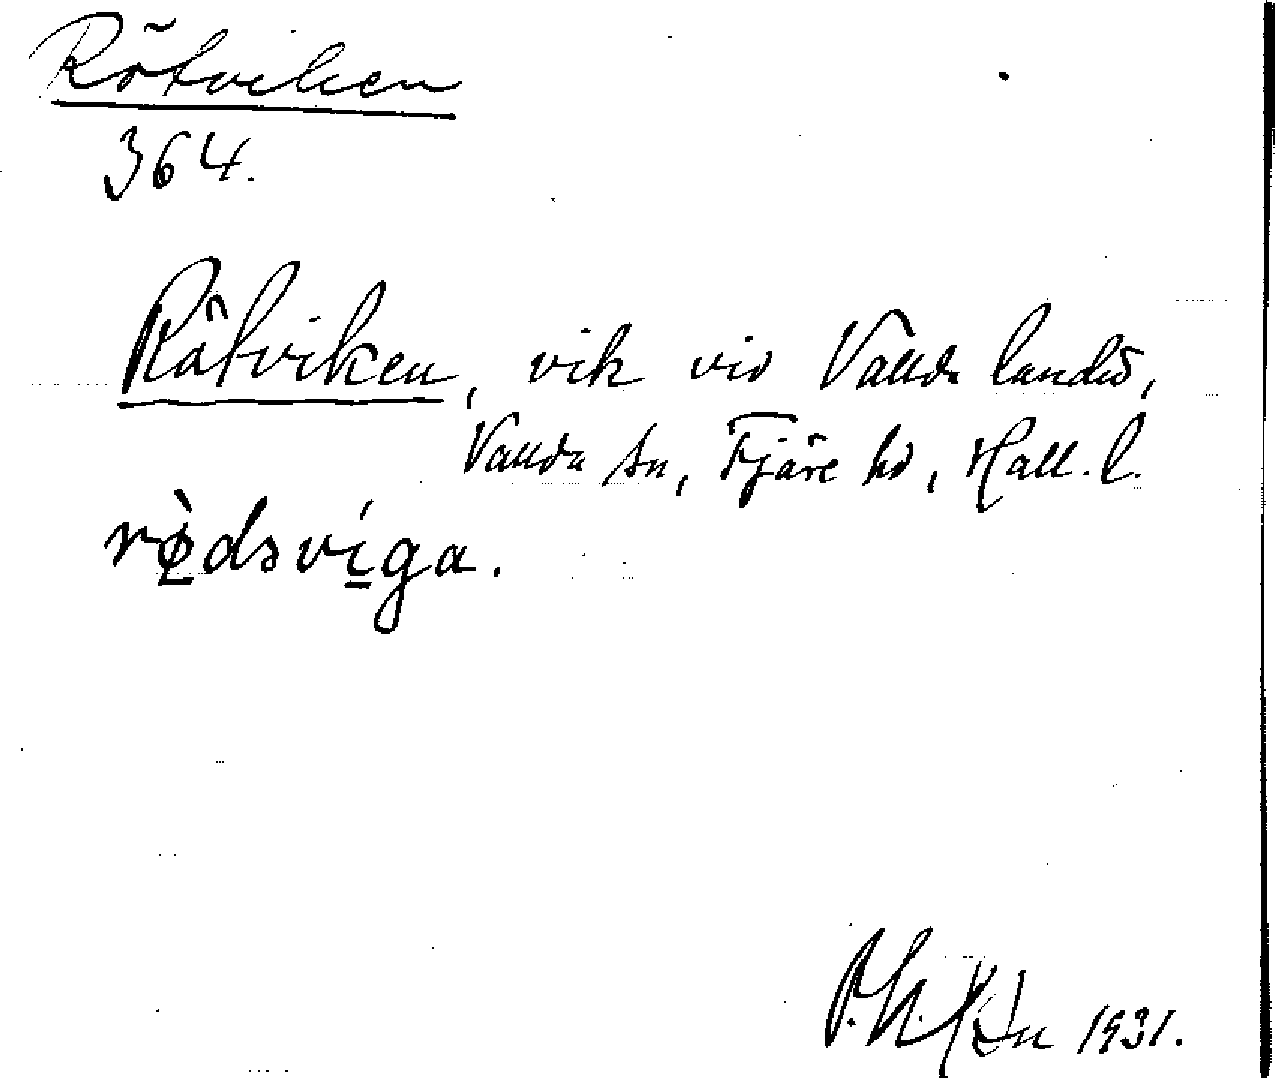 Rötviken
364.
Rötviken, vik vid Vallda landet,
Vallda sn, Fjäre hd, Hall. l.
rø̀dsvíga.
1931.